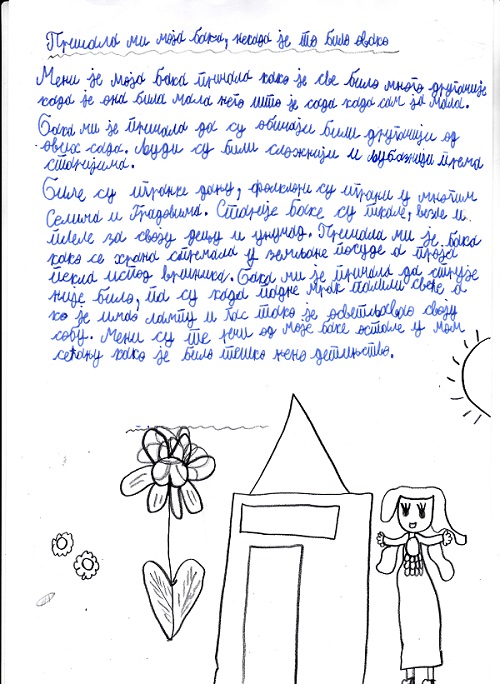 Причала ми моја бака, некада је то било овако
Мени је моја бака причала како је све било много другачије
када је она била мала него што је сада када сам ја мала.
Бака ми је причала да су обичаји били другачији од
ових сада. Људи су били сложнији и љубазнији према
старијима.
Биле су игранке, фолклори су играни у многим
Селима и Градовима. Старије баке су ткале, везле и
плеле за своју децу и унучад. Причала ми је бака
како се храна спремала у земљане посуде а проја
пекла испод вршника. Бака ми је причала да струје
није било, па су када падне мрак палили свеће а
ко је имао лампу и гас тако је осветљавао своју
собу. Мени су те речи од моје баке остале у мом
сећању како је било тешко њено детињство.